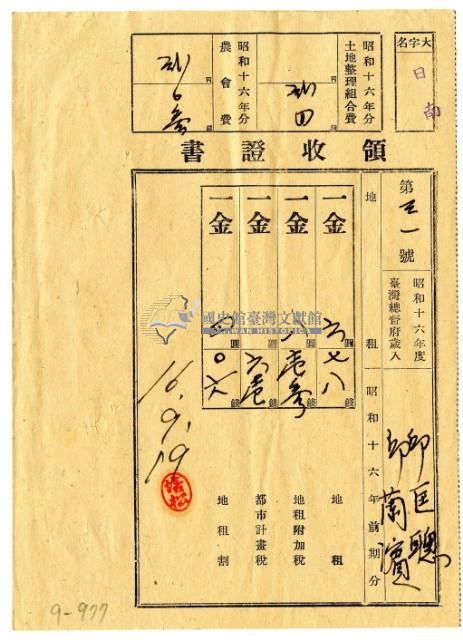 大字名
日南
昭和十六年分
土地整理組合費
円
四
錢
昭和十六年分
農會費
円
参
錢
領收證書
第三一號
昭和十六年度
臺灣總督府歲入
地租
昭和十六年前期分
邱匡聰
邱蘭濱
一金
六圓七八錢
地租
一金
八圓壱参錢
地租附加稅
一金
圓六壱錢
都市計畫稅
一金
四圓〇六錢
地租割
16.9.19
國史館臺灣文獻館
TAIWAN HISTORICA
9-977